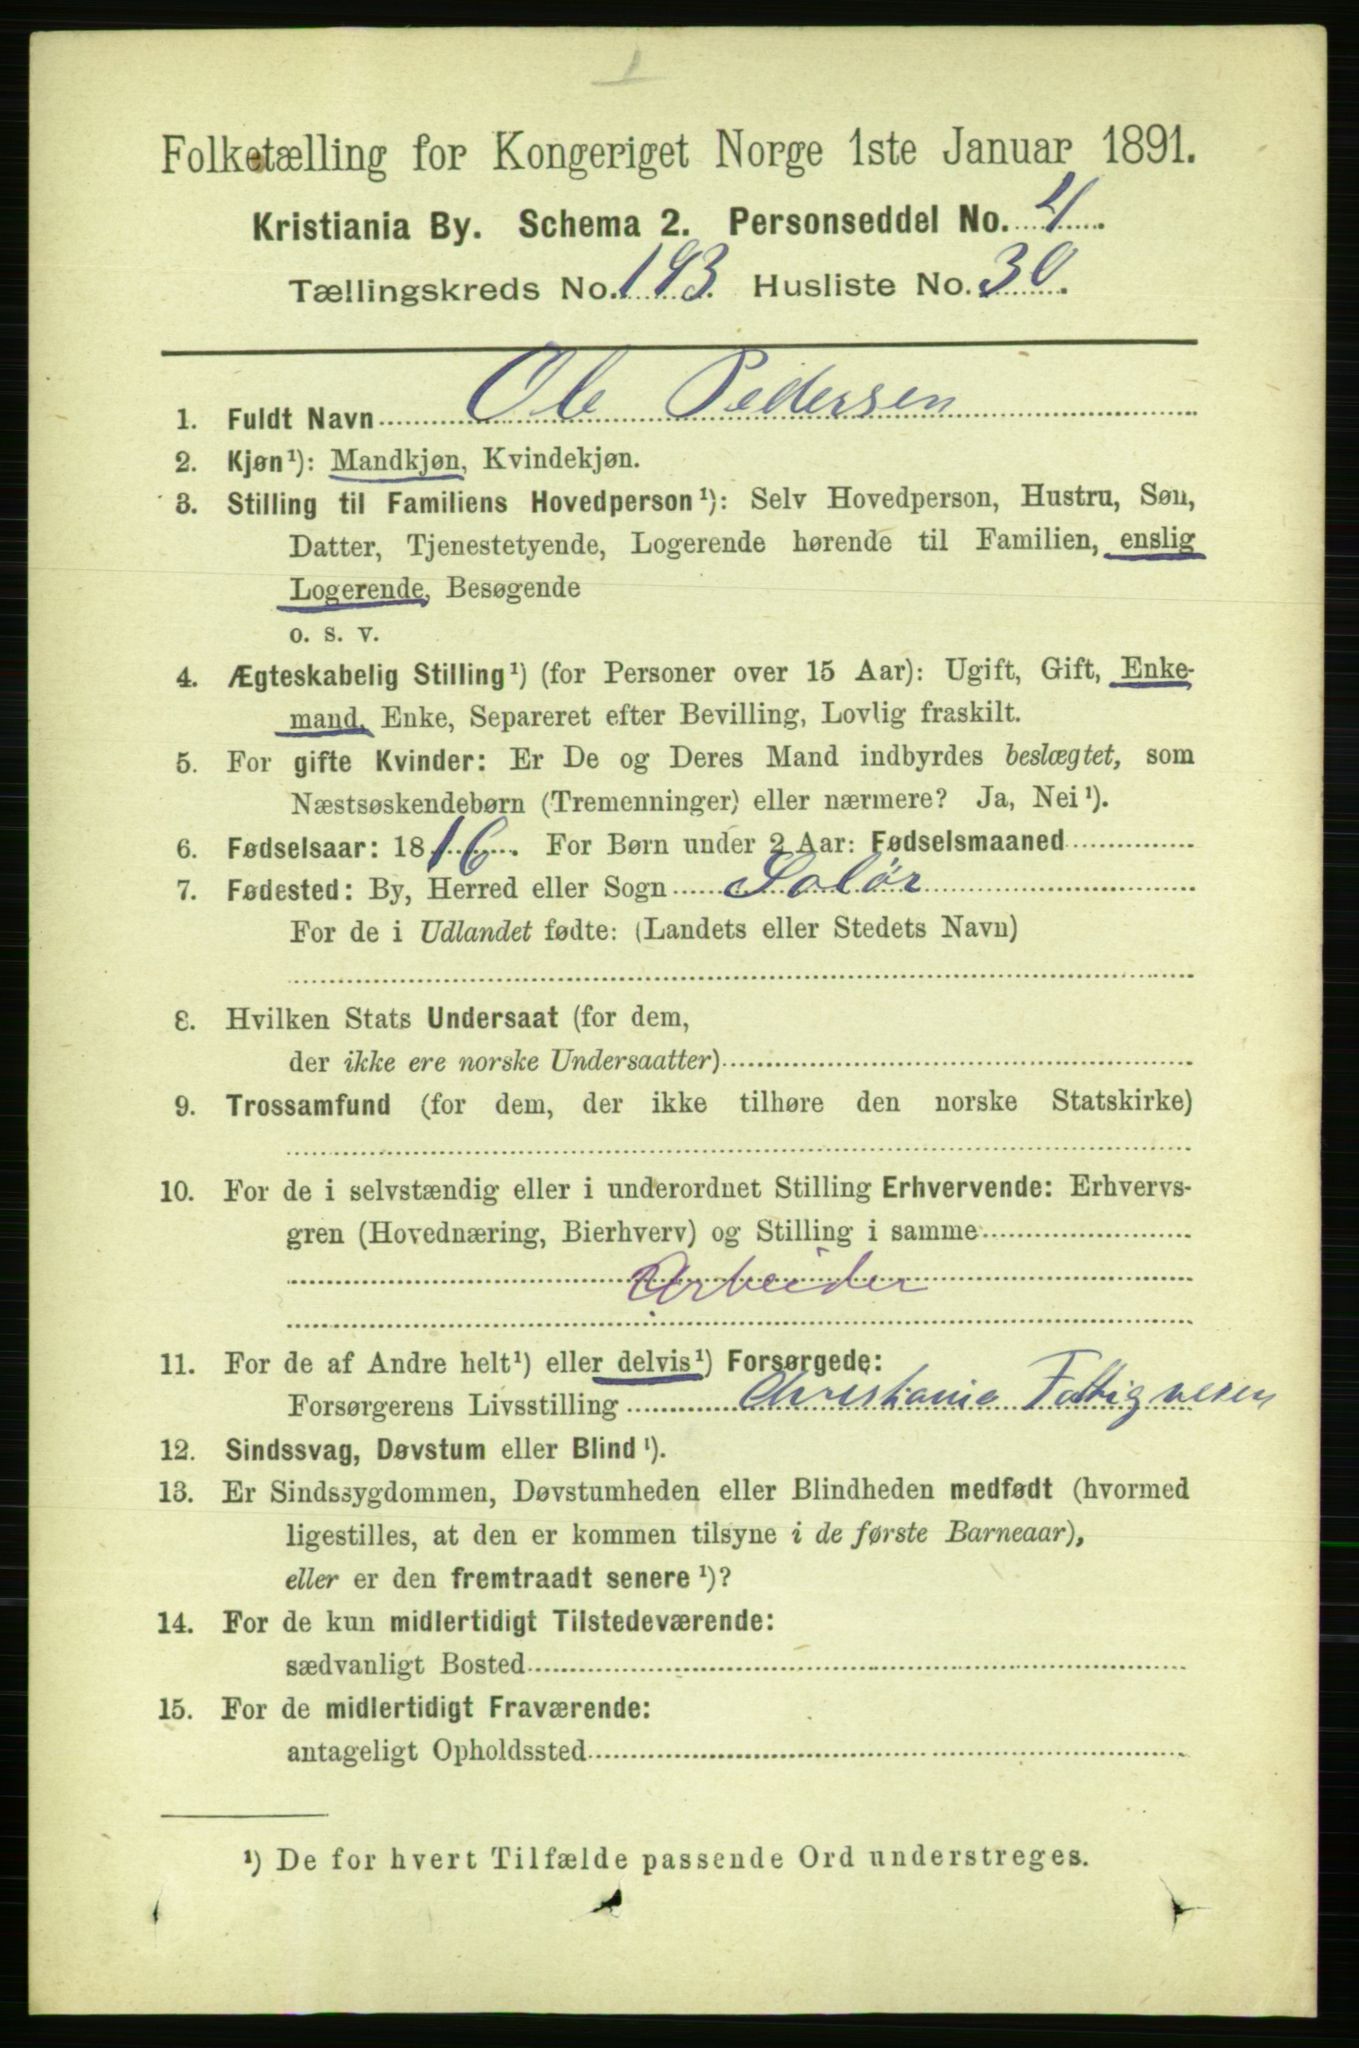 1
Folketælling for Kongeriget Norge 1ste Januar 1891.
Kristiania By. Schema 2. Personseddel No. 4.
Tællingskreds No. 193. Husliste No. 30.
1. Fuldt Navn Ole Pedersen
2. Kjøn¹): Mandkjøn, Kvindekjøn.
3. Stilling til Familiens Hovedperson¹): Selv Hovedperson, Hustru, Søn,
Datter, Tjenestetyende, Logerende hørende til Familien, enslig
Logerende, Besøgende
o. s. v.
4. Ægteskabelig Stilling¹) (for Personer over 15 Aar): Ugift, Gift, Enke-
mand, Enke, Separeret efter Bevilling, Lovlig fraskilt.
5. For gifte Kvinder: Er De og Deres Mand indbyrdes beslægtet, som
Næstsøskendebørn (Tremenninger) eller nærmere? Ja, Nei¹).
6. Fødselsaar: 1816. For Børn under 2 Aar: Fødselsmaaned
7. Fødested: By, Herred eller Sogn Solør
For de i Udlandet fødte: (Landets eller Stedets Navn)
8. Hvilken Stats Undersaat (for dem,
der ikke ere norske Undersaatter)
9. Trossamfund (for dem, der ikke tilhøre den norske Statskirke)
10. For de i selvstændig eller i underordnet Stilling Erhvervende: Erhvervs-
gren (Hovednæring, Bierhverv) og Stilling i samme
Arbeider
11. For de af Andre helt¹) eller delvis¹) Forsørgede:
Forsørgerens Livsstilling Christiania Fattigvesen
12. Sindssvag, Døvstum eller Blind¹).
13. Er Sindssygdommen, Døvstumheden eller Blindheden medfødt (hvormed
ligestilles, at den er kommen tilsyne i de første Barneaar),
eller er den fremtraadt senere¹)?
14. For de kun midlertidigt Tilstedeværende:
sædvanligt Bosted
15. For de midlertidigt Fraværende:
antageligt Opholdssted
¹) De for hvert Tilfælde passende Ord understreges.